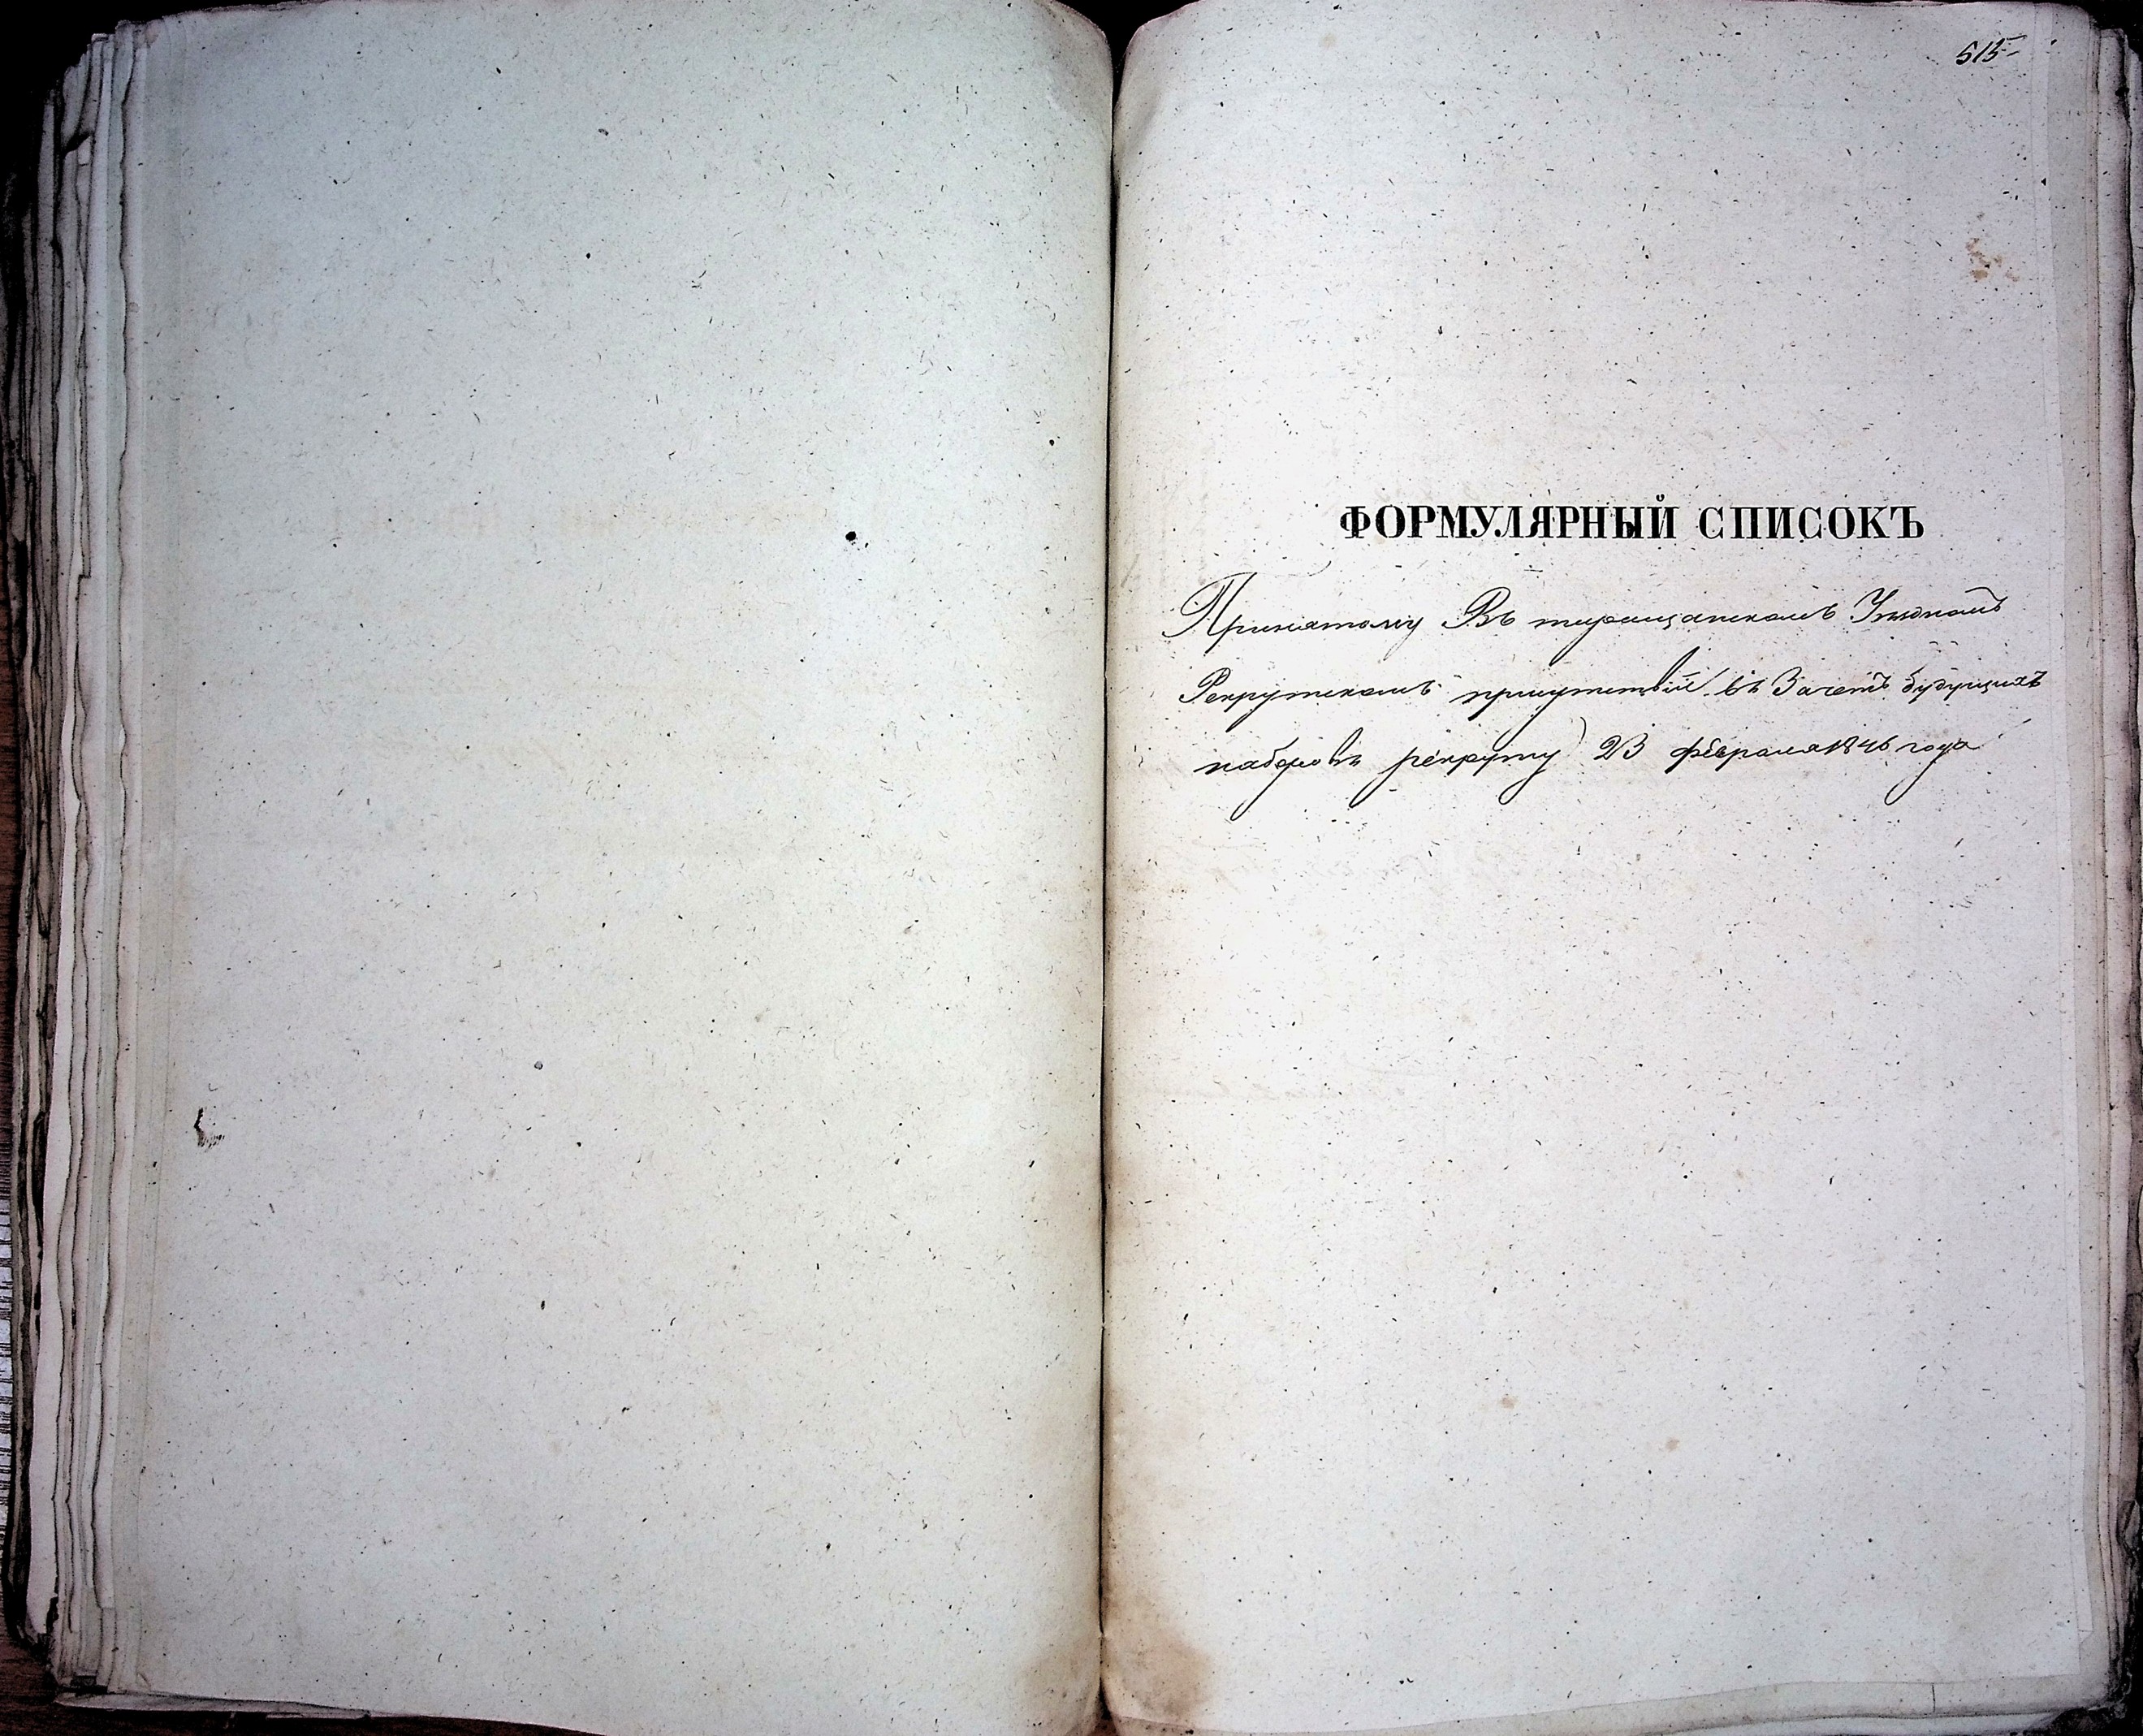 515
ФОРМУЛЯРНЫЙ СПИСОКЪ
Принятому Въ тиращанскомъ Уѣздномъ
Рекрутскомъ присутствіи въ Зачетъ будущихъ
наборовъ рекруту 23 февраля 1846 года